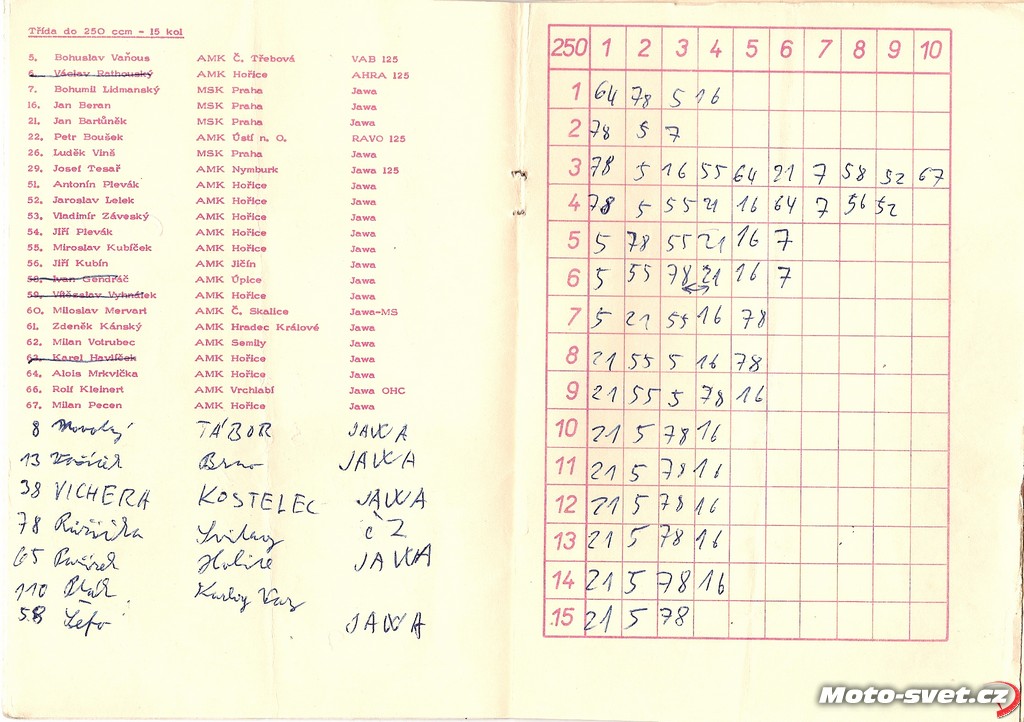 Třída do 250 ccm - 15 kol
5. Bohuslav Vaňous AMK Č. Třebová VAB 125
6. Václav Rathouský AMK Hořice AHRA 125
7. Bohumil Lidmanský MSK Praha Jawa
16. Jan Beran MSK Praha Jawa
21. Jan Bartůněk MSK Praha Jawa
22. Petr Boušek AMK Ústí n. O. RAVO 125
26. Luděk Vinš MSK Praha Jawa
29. Josef Tesař AMK Nymburk Jawa 125
51. Antonín Plevák AMK Hořice Jawa
52. Jaroslav Lelek AMK Hořice Jawa
53. Vladimír Záveský AMK Hořice Jawa
54. Jiří Plevák AMK Hořice Jawa
55. Miroslav Kubíček AMK Hořice Jawa
56. Jiří Kubín AMK Jičín Jawa
58. Ivan Gendráč AMK Úpice Jawa
59. Vítězslav Vyhnálek AMK Hořice Jawa
60. Miloslav Mervart AMK Č. Skalice Jawa-MS
61. Zdeněk Kánský AMK Hradec Králové Jawa
62. Milan Votrubec AMK Semily Jawa
63. Karel Havlíček AMK Hořice Jawa
64. Alois Mrkvička AMK Hořice Jawa
66. Rolf Kleinert AMK Vrchlabí Jawa OHC
67. Milan Pecen AMK Hořice Jawa
8 TÁBOR JAWA
13 Brno JAWA
38 VICHERA KOSTELEC JAWA
78 Růžička Svitavy ČZ
65 Holice JAWA
110 Karlovy Vary
58 JAWA
250 1 2 3 4 5 6 7 8 9 10
1 64 78 5 16
2 78 5 7
3 78 5 16 55 64 21 7 58 52 67
4 78 5 55 21 16 64 7 56 52
5 5 78 55 21 16 7
6 5 55 78 21 16 7
7 5 21 55 16 78
8 21 55 5 16 78
9 21 55 5 78 16
10 21 5 78 16
11 21 5 78 16
12 21 5 78 16
13 21 5 78 16
14 21 5 78 16
15 21 5 78
Moto-svet.cz